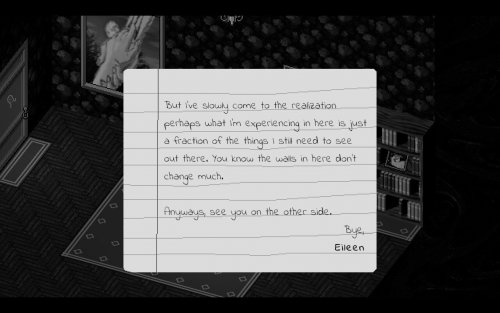 But I've slowly come to the realization
perhaps what I'm experiencing in here is just
a fraction of the things I still need to see
out there. You know the walls in here don't
change much.
Anyways, see you on the other side.
Bye,
Eileen